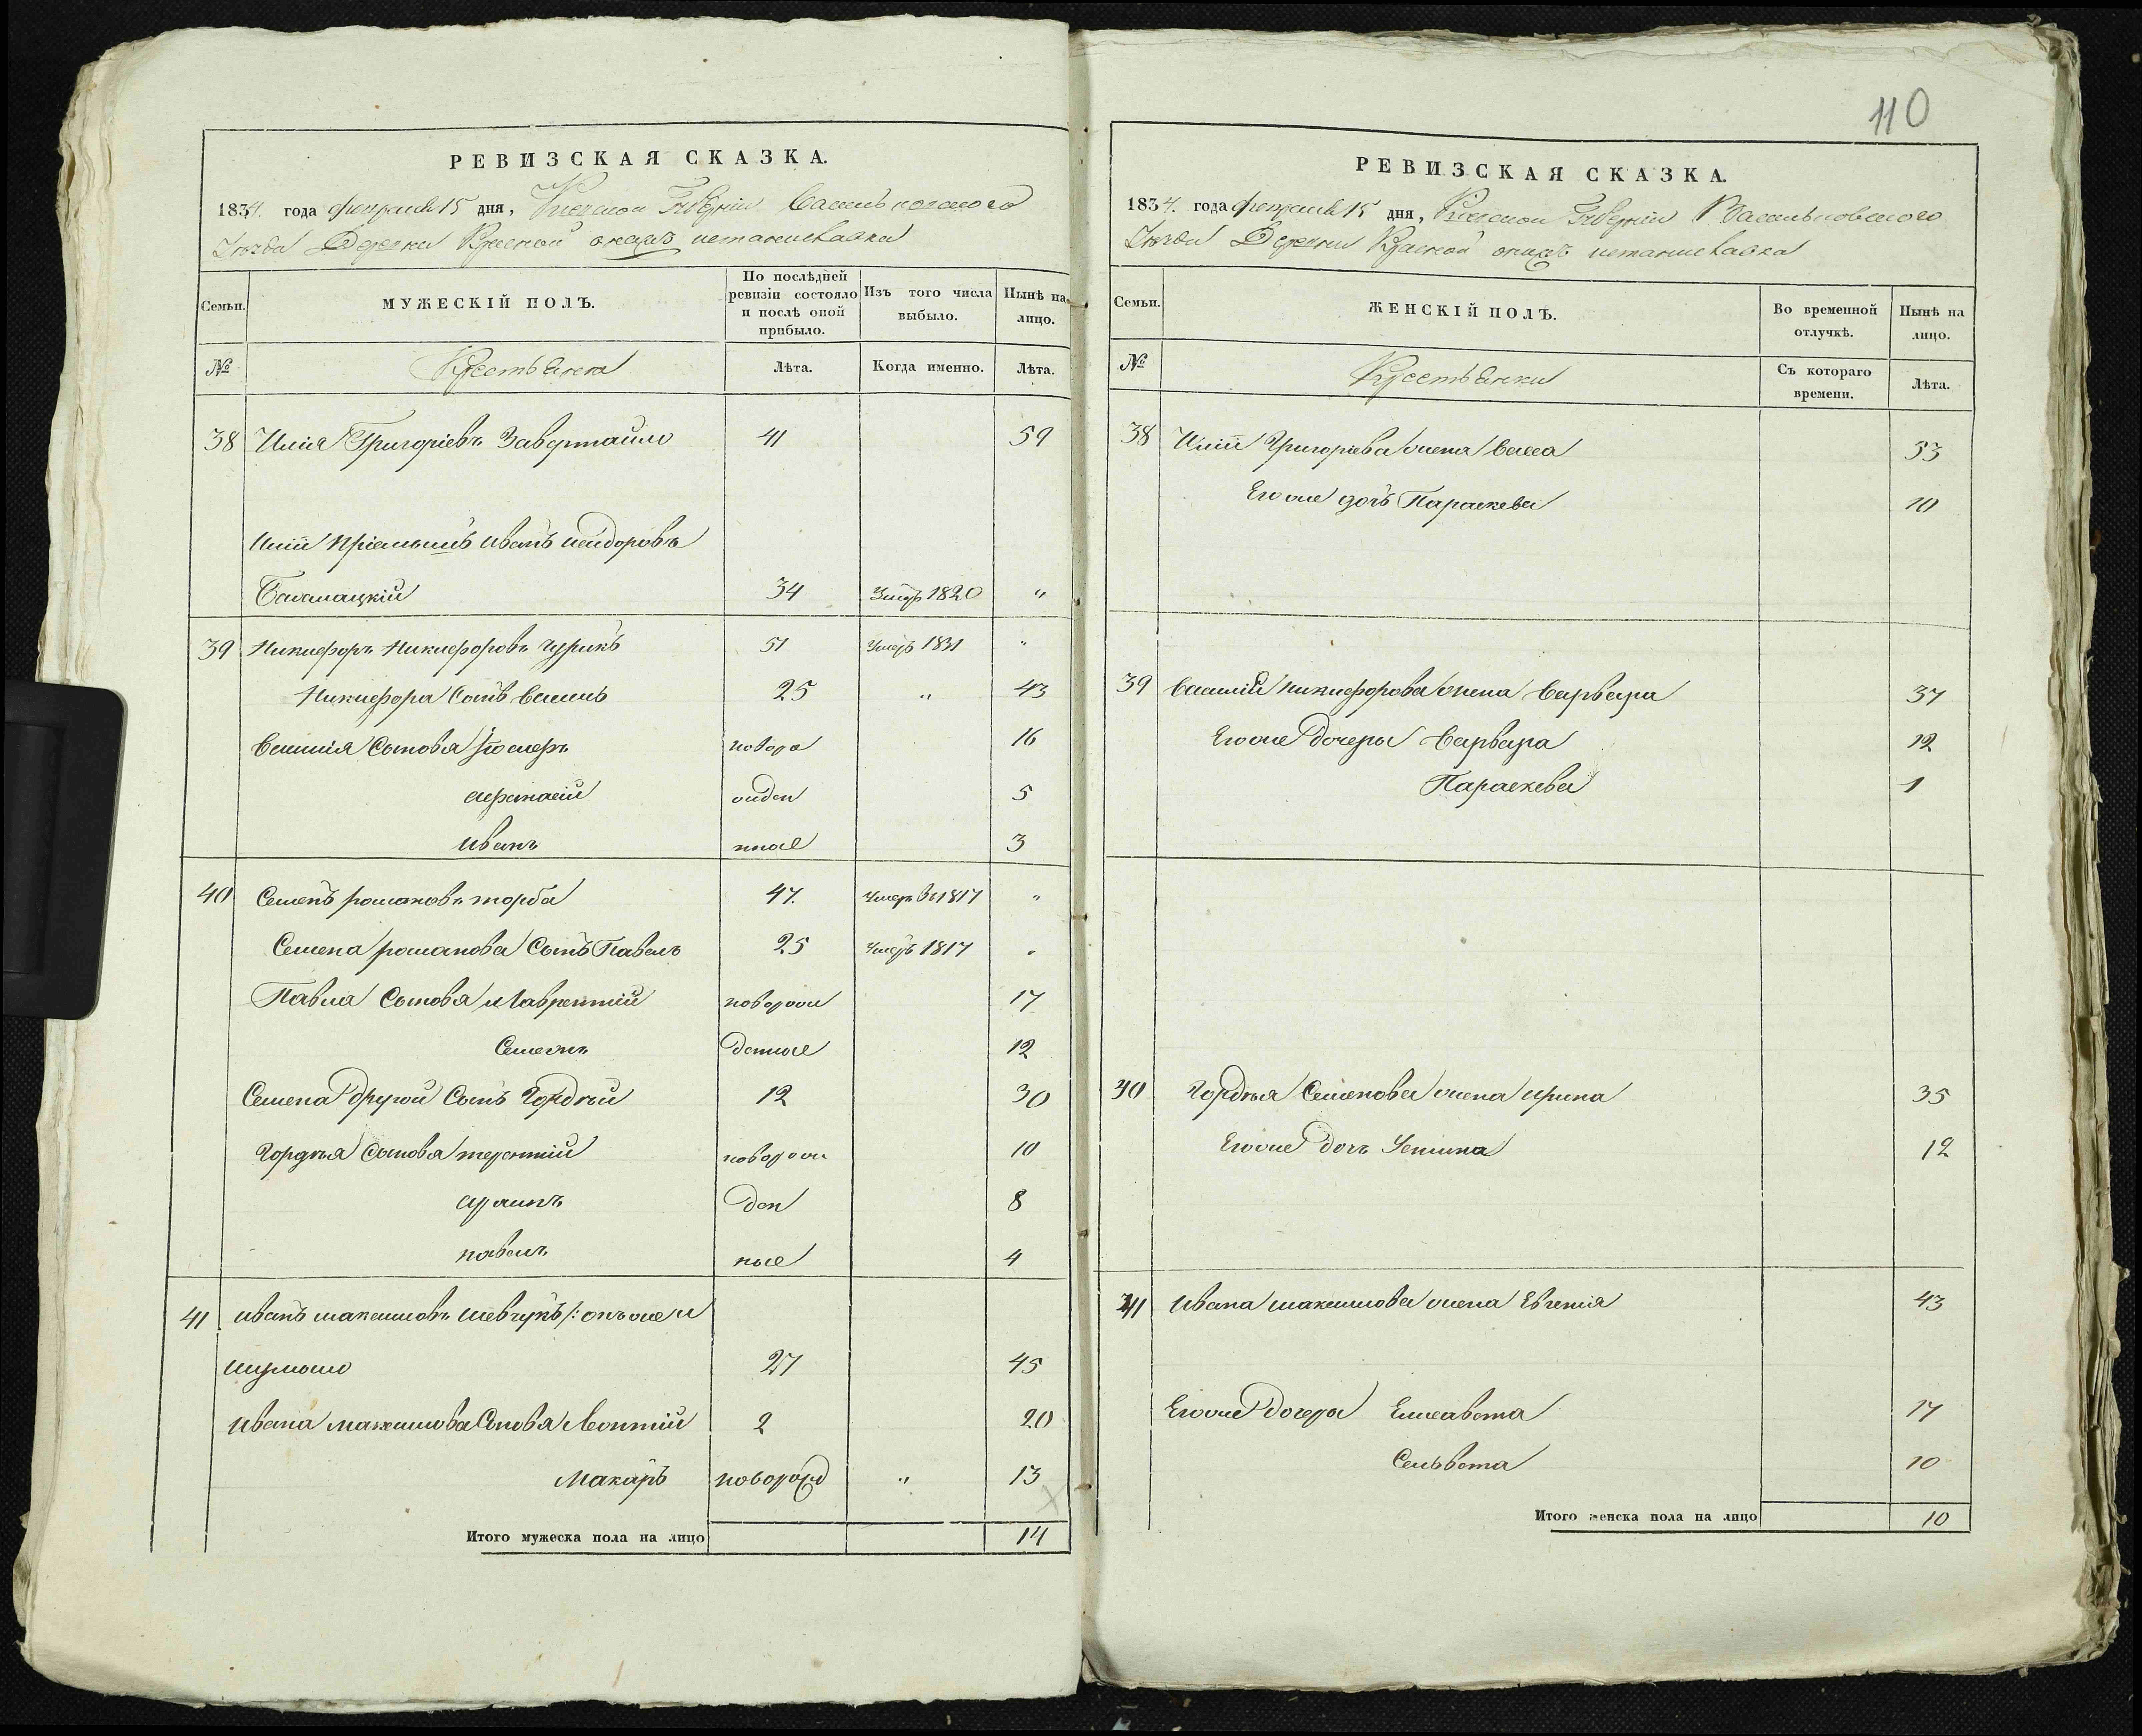 РЕВИЗСКАЯ СКАЗКА.
1834. года февраля 15 дня, Киевской Губернiи Васильковского
Уезда Деревни Красной
Семьи.
МУЖЕСКІЙ ПОЛЪ.
По послѣдней ревизіи состояло и послѣ оной прибыло.
Изъ того числа выбыло.
Нынѣ на лицо.
№
Крестьяне
Лѣта.
Когда именно.
Лѣта.
38 Илія Григоріевъ Завертайло 41 59
Иліи пріемышъ иванъ исидоровъ
34 Умеръ 1820 "
39 Никифоръ Никифоровъ чурикъ 51 Умеръ 1831 "
Никифора Сынъ Василь 25 " 43
Василія Сыновя Іосифъ новоро 16
афанасій жден 5
иванъ ные 3
40 Семенъ романовъ торба 47. Умеръ въ 1817 "
Семена романова Сынъ Павелъ 25 Умеръ 1817 "
Павла Сыновя Лаврентій новорож 17
Семенъ денные 12
Семена другой Сынъ Гордѣй 12 30
Гордѣя Сыновя терентій новорож 10
ден 8
павелъ ные 4
41 иванъ максимовъ шевчукъ /: онъ же и
27 45
ивана максимова Сыновя Леонтій 2 20
Макаръ новорожд " 13
Итого мужеска пола на лицо 14
110
РЕВИЗСКАЯ СКАЗКА.
1834. года февраля 15 дня, Киевской Губернiи Васильковского
Уезда Деревни Красной
Семьи.
ЖЕНСКІЙ ПОЛЪ.
Во временной отлучкѣ.
Нынѣ на лицо.
№
Крестьянки
Съ котораго времени.
Лѣта.
38 Иліи Григоріева жена Васса 53
Его же дочь Параскева 10
39 Василія Никифорова жена Варвара 37
Его же Дочеры Варвара 12
Параскева 1
40 Гордѣя Семенова жена ирина 35
Его же дочъ Устина 12
41 Ивана максимова жена Евгенія 43
Его же Дочеры Елисавета 17
10
Итого женска пола на лицо 10